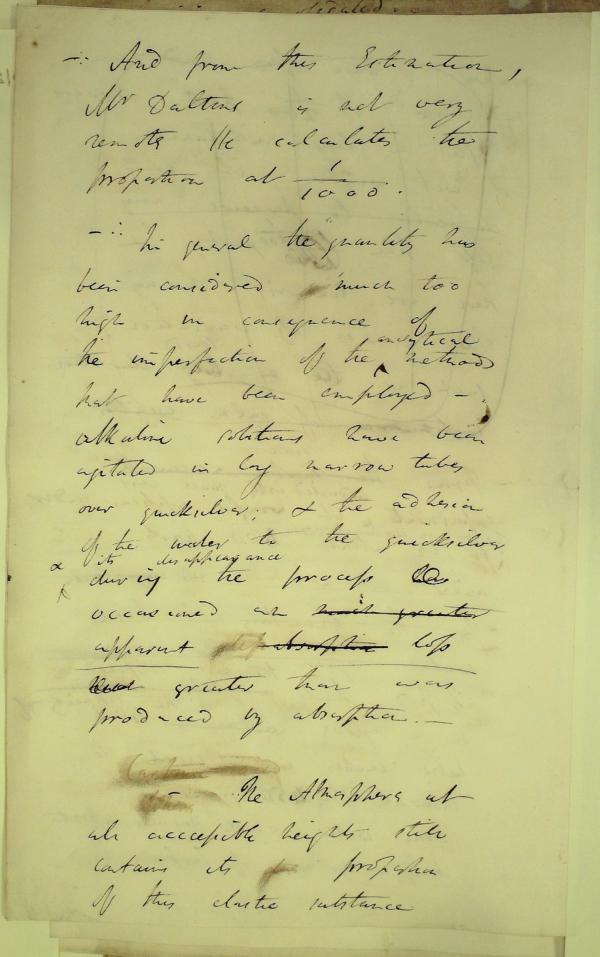 -: And from this Estimation,
Mr Daltons is not very
remote He calculates the
proportion at 1/1000.
-:: In general the quantity has
been considered much too
high in consequence of
the imperfection of the analytical methods
that have been employed -.
alkaline solutions have been
agitated in long narrow tubes
over quicksilver; & the adhesion
of the water to the quicksilver
& its disappearance
during the process has
occasioned an much greater
apparent absorption loss
greater than was
produced by absorption. —
The Atmosphere at
all accessible heights still
contains its proportion
of this elastic substance